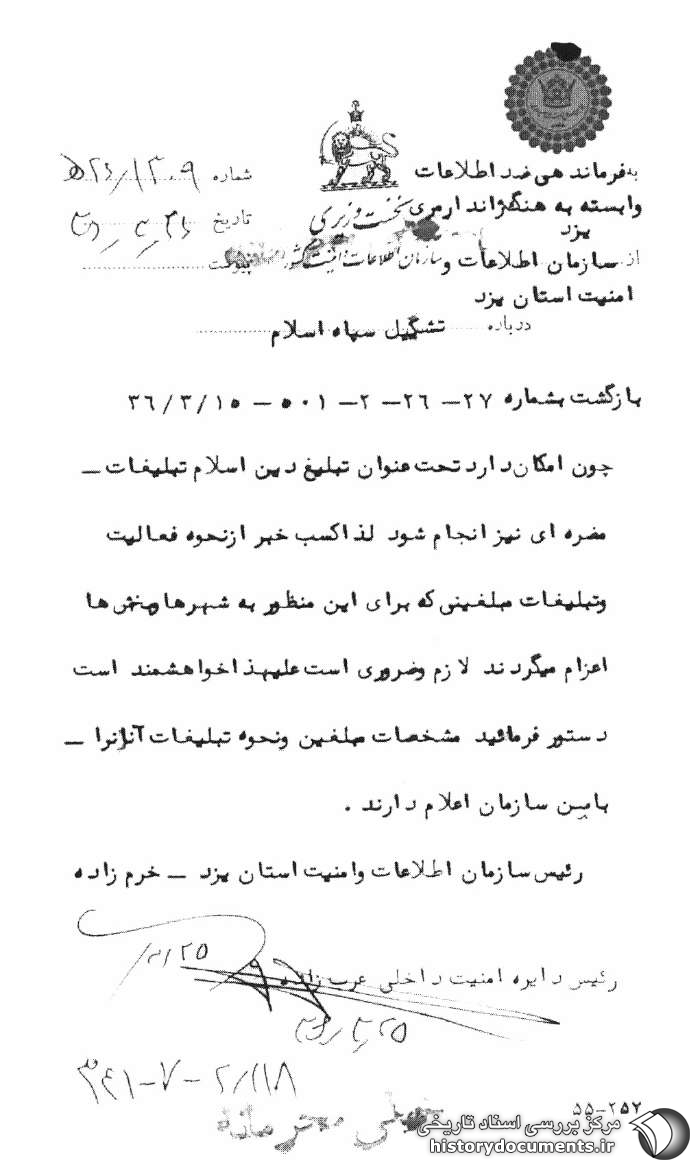 به فرماندهی ضد اطلاعات
وابسته به هنگ ژاندارمری
یزد
نخست وزیری
سازمان اطلاعات و امنیت کشور
شماره
تاریخ
پیوست
از سازمان اطلاعات و
امنیت استان یزد
درباره تشکیل سپاه اسلام
بازگشت بشماره ۲۷ – ۲۶ – ۲ – ۵۰۱ – ۳۶/۳/۱۵
چون امکان دارد تحت عنوان تبلیغ دین اسلام تبلیغات –
مضره ای نیز انجام شود لذا کسب خبر از نحوه فعالیت
و تبلیغات مبلغینی که برای این منظور به شهرها و بخش ها
اعزام میگردند لازم و ضروری است علیهذا خواهشمند است
دستور فرمائید مشخصات مبلغین و نحوه تبلیغات آنانرا –
باین سازمان اعلام دارند .
رئیس سازمان اطلاعات و امنیت استان یزد – خرم زاده
رئیس دایره امنیت داخلی عرب زاده
۳۴۱-۷-۲/۱۱۸
خیلی محرمانه
۵۵-۲۵۷
مرکز بررسی اسناد تاریخی
historydocuments.ir